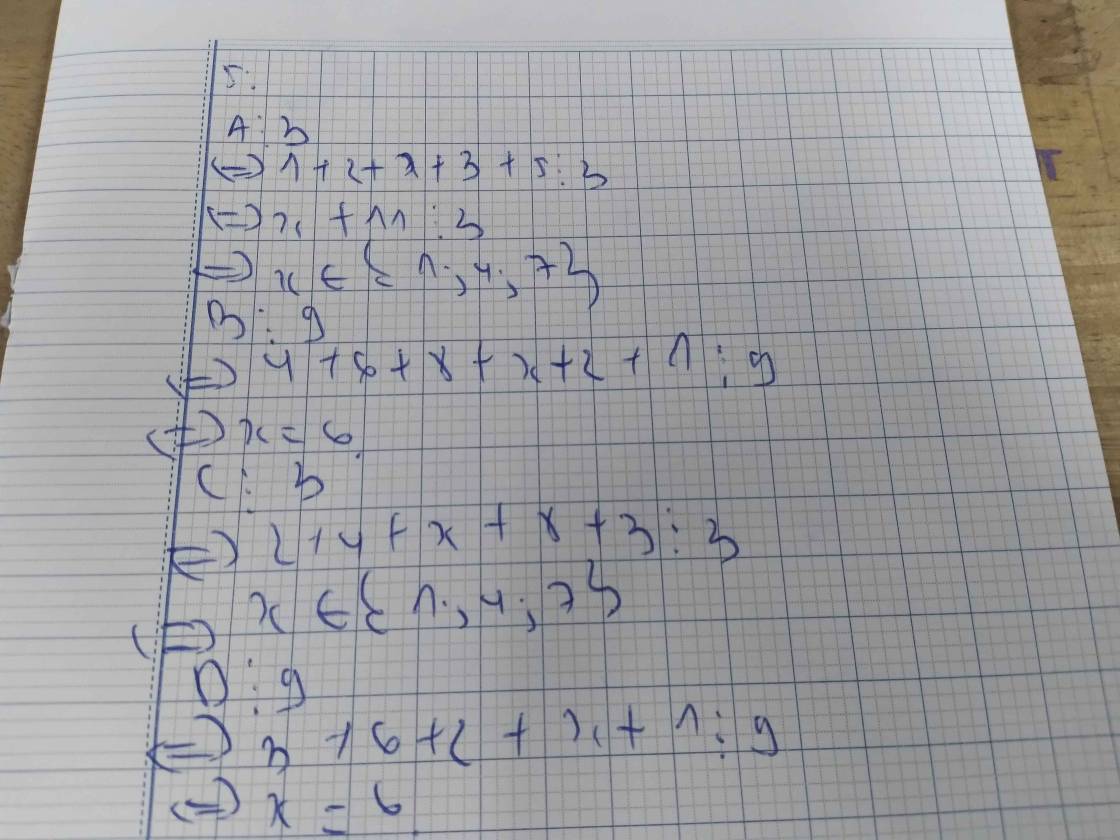 5:
A ⋮ 3
⇔ 1 + 2 + x + 3 + 5 ⋮ 3
⇔ x + 11 ⋮ 3
⇔ x ∈ { 1 ; 4 ; 7 }
B ⋮ 9
⇔ 4 + 6 + 8 + x + 2 + 1 ⋮ 9
⇔ x = 6
C ⋮ 3
⇔ 2 + 4 + x + 8 + 3 ⋮ 3
⇔ x ∈ { 1 ; 4 ; 7 }
D ⋮ 9
⇔ 3 + 6 + 2 + x + 1 ⋮ 9
⇔ x = 6